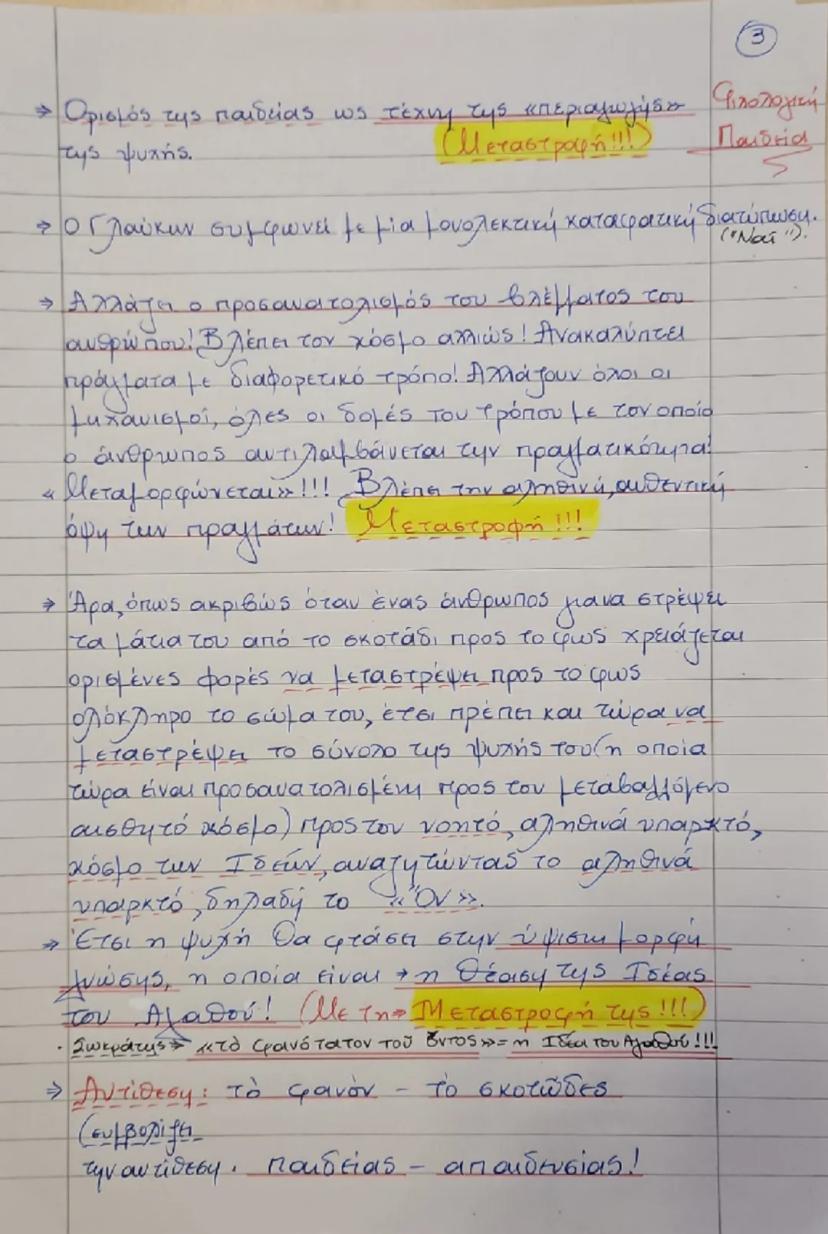 3
⇒ Ορισμός της παιδείας ως τέχνη της «περιαγωγής» Φιλολογική
της ψυχής. (Μεταστροφή!!!) Παιδεία
⇒ Ο Γλαύκων συμφωνεί με μία μονολεκτική καταφατική διατύπωση.
("Ναί").
⇒ Αλλάζει ο προσανατολισμός του βλέμματος του
ανθρώπου! Βλέπει τον κόσμο αλλιώς! Ανακαλύπτει
πράγματα με διαφορετικό τρόπο! Αλλάζουν όλοι οι
μηχανισμοί, όλες οι δομές του τρόπου με τον οποίο
ο άνθρωπος αντιλαμβάνεται την πραγματικότητα!
«Μεταμορφώνεται»!!! Βλέπει την αληθινή, αυθεντική
όψη των πραγμάτων! Μεταστροφή!!!
⇒ Άρα, όπως ακριβώς όταν ένας άνθρωπος για να στρέψει
τα μάτια του από το σκοτάδι προς το φως χρειάζεται
ορισμένες φορές να μεταστρέψει προς το φως
ολόκληρο το σώμα του, έτσι πρέπει και τώρα να
μεταστρέψει το σύνολο της ψυχής του (η οποία
τώρα είναι προσανατολισμένη προς τον μεταβαλλόμενο
αισθητό κόσμο) προς τον νοητό, αληθινά υπαρκτό,
κόσμο των Ιδεών, αναζητώντας το αληθινά
υπαρκτό, δηλαδή το «Όν».
⇒ Έτσι η ψυχή θα φτάσει στην ύψιστη μορφή
γνώσης, η οποία είναι → η θέαση της Ιδέας
του Αγαθού! (Με τη ⇒ Μεταστροφή της!!!)
· Σωκράτης ⇒ «τὸ φανότατον τοῦ ὄντος» = η Ιδέα του Αγαθού!!!
⇒ Αντίθεση: τὸ φανὸν – τὸ σκοτῶδες
(συμβολίζει
την αντίθεση · παιδείας – απαιδευσίας!